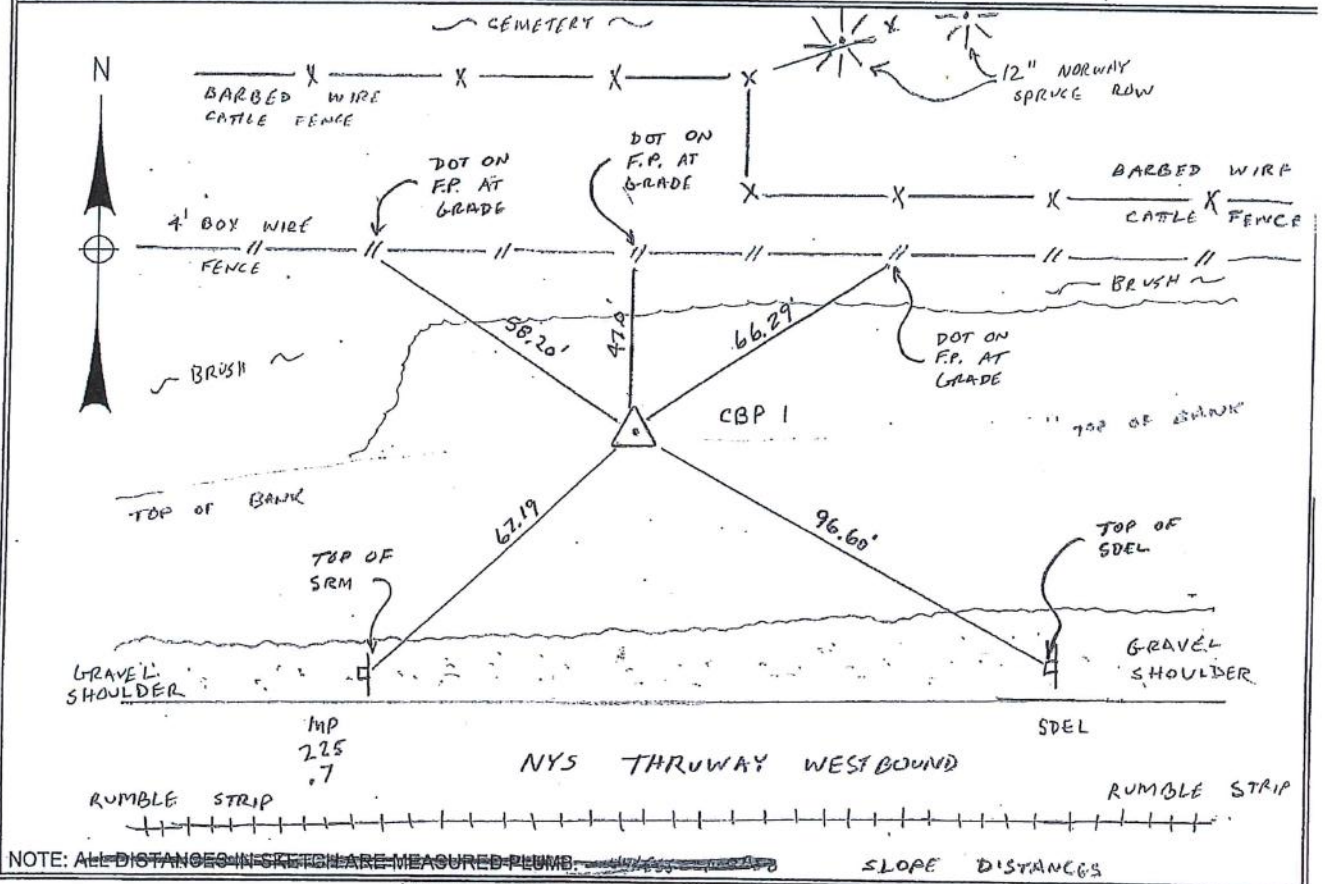 CEMETERY
N
X
12" NORWAY
SPRUCE ROW
BARBED WIRE
CATTLE FENCE
DOT ON
F.P. AT
GRADE
DOT ON
F.P. AT
GRADE
BARBED WIRE
CATTLE FENCE
4' BOX WIRE
FENCE
BRUSH
58.20'
47.0'
66.29'
DOT ON
F.P. AT
GRADE
BRUSH
CBP 1
TOP OF BANK
TOP OF BANK
67.19
96.60'
TOP OF
SRM
TOP OF
SDEL
GRAVEL
SHOULDER
GRAVEL
SHOULDER
MP
225
.7
SDEL
NYS THRUWAY WESTBOUND
RUMBLE STRIP
RUMBLE STRIP
NOTE: ALL DISTANCES IN SKETCH ARE MEASURED PLUMB. SLOPE DISTANCES